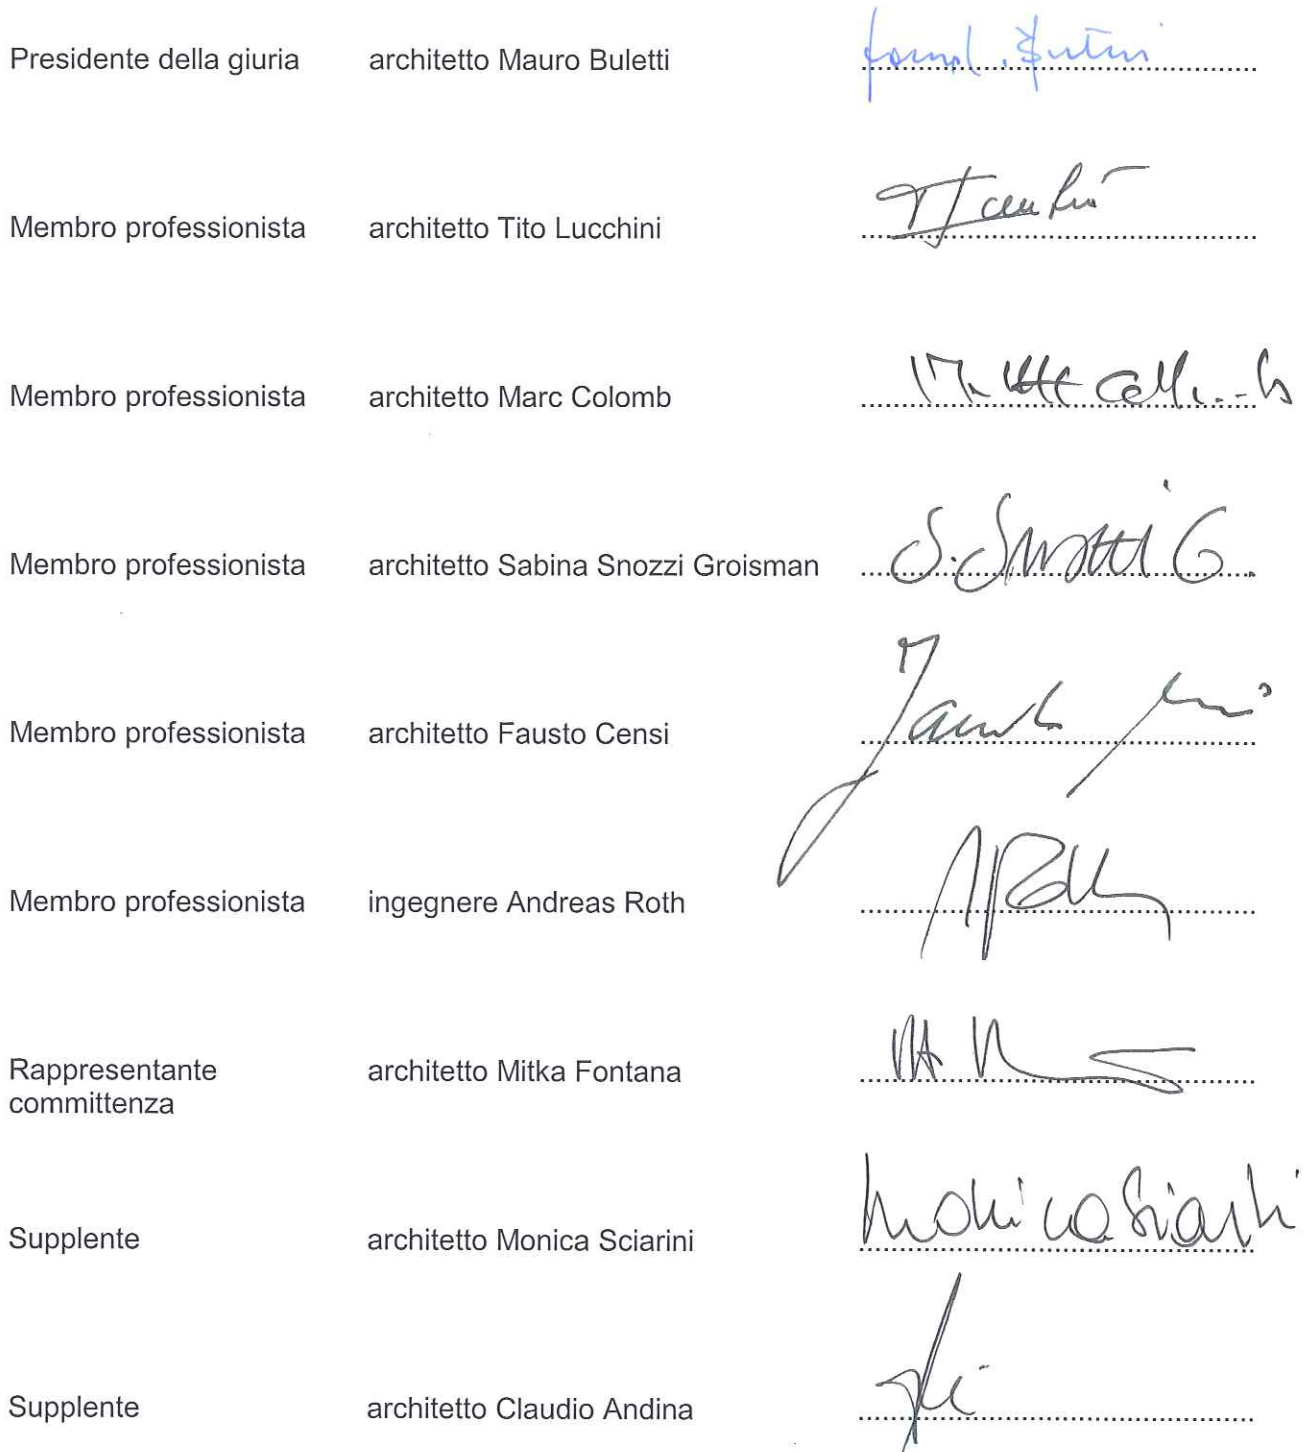 Presidente della giuria architetto Mauro Buletti
Membro professionista architetto Tito Lucchini
Membro professionista architetto Marc Colomb
Membro professionista architetto Sabina Snozzi Groisman S. Snozzi G.
Membro professionista architetto Fausto Censi
Membro professionista ingegnere Andreas Roth
Rappresentante architetto Mitka Fontana
committenza
Supplente architetto Monica Sciarini Monica Sciarini
Supplente architetto Claudio Andina